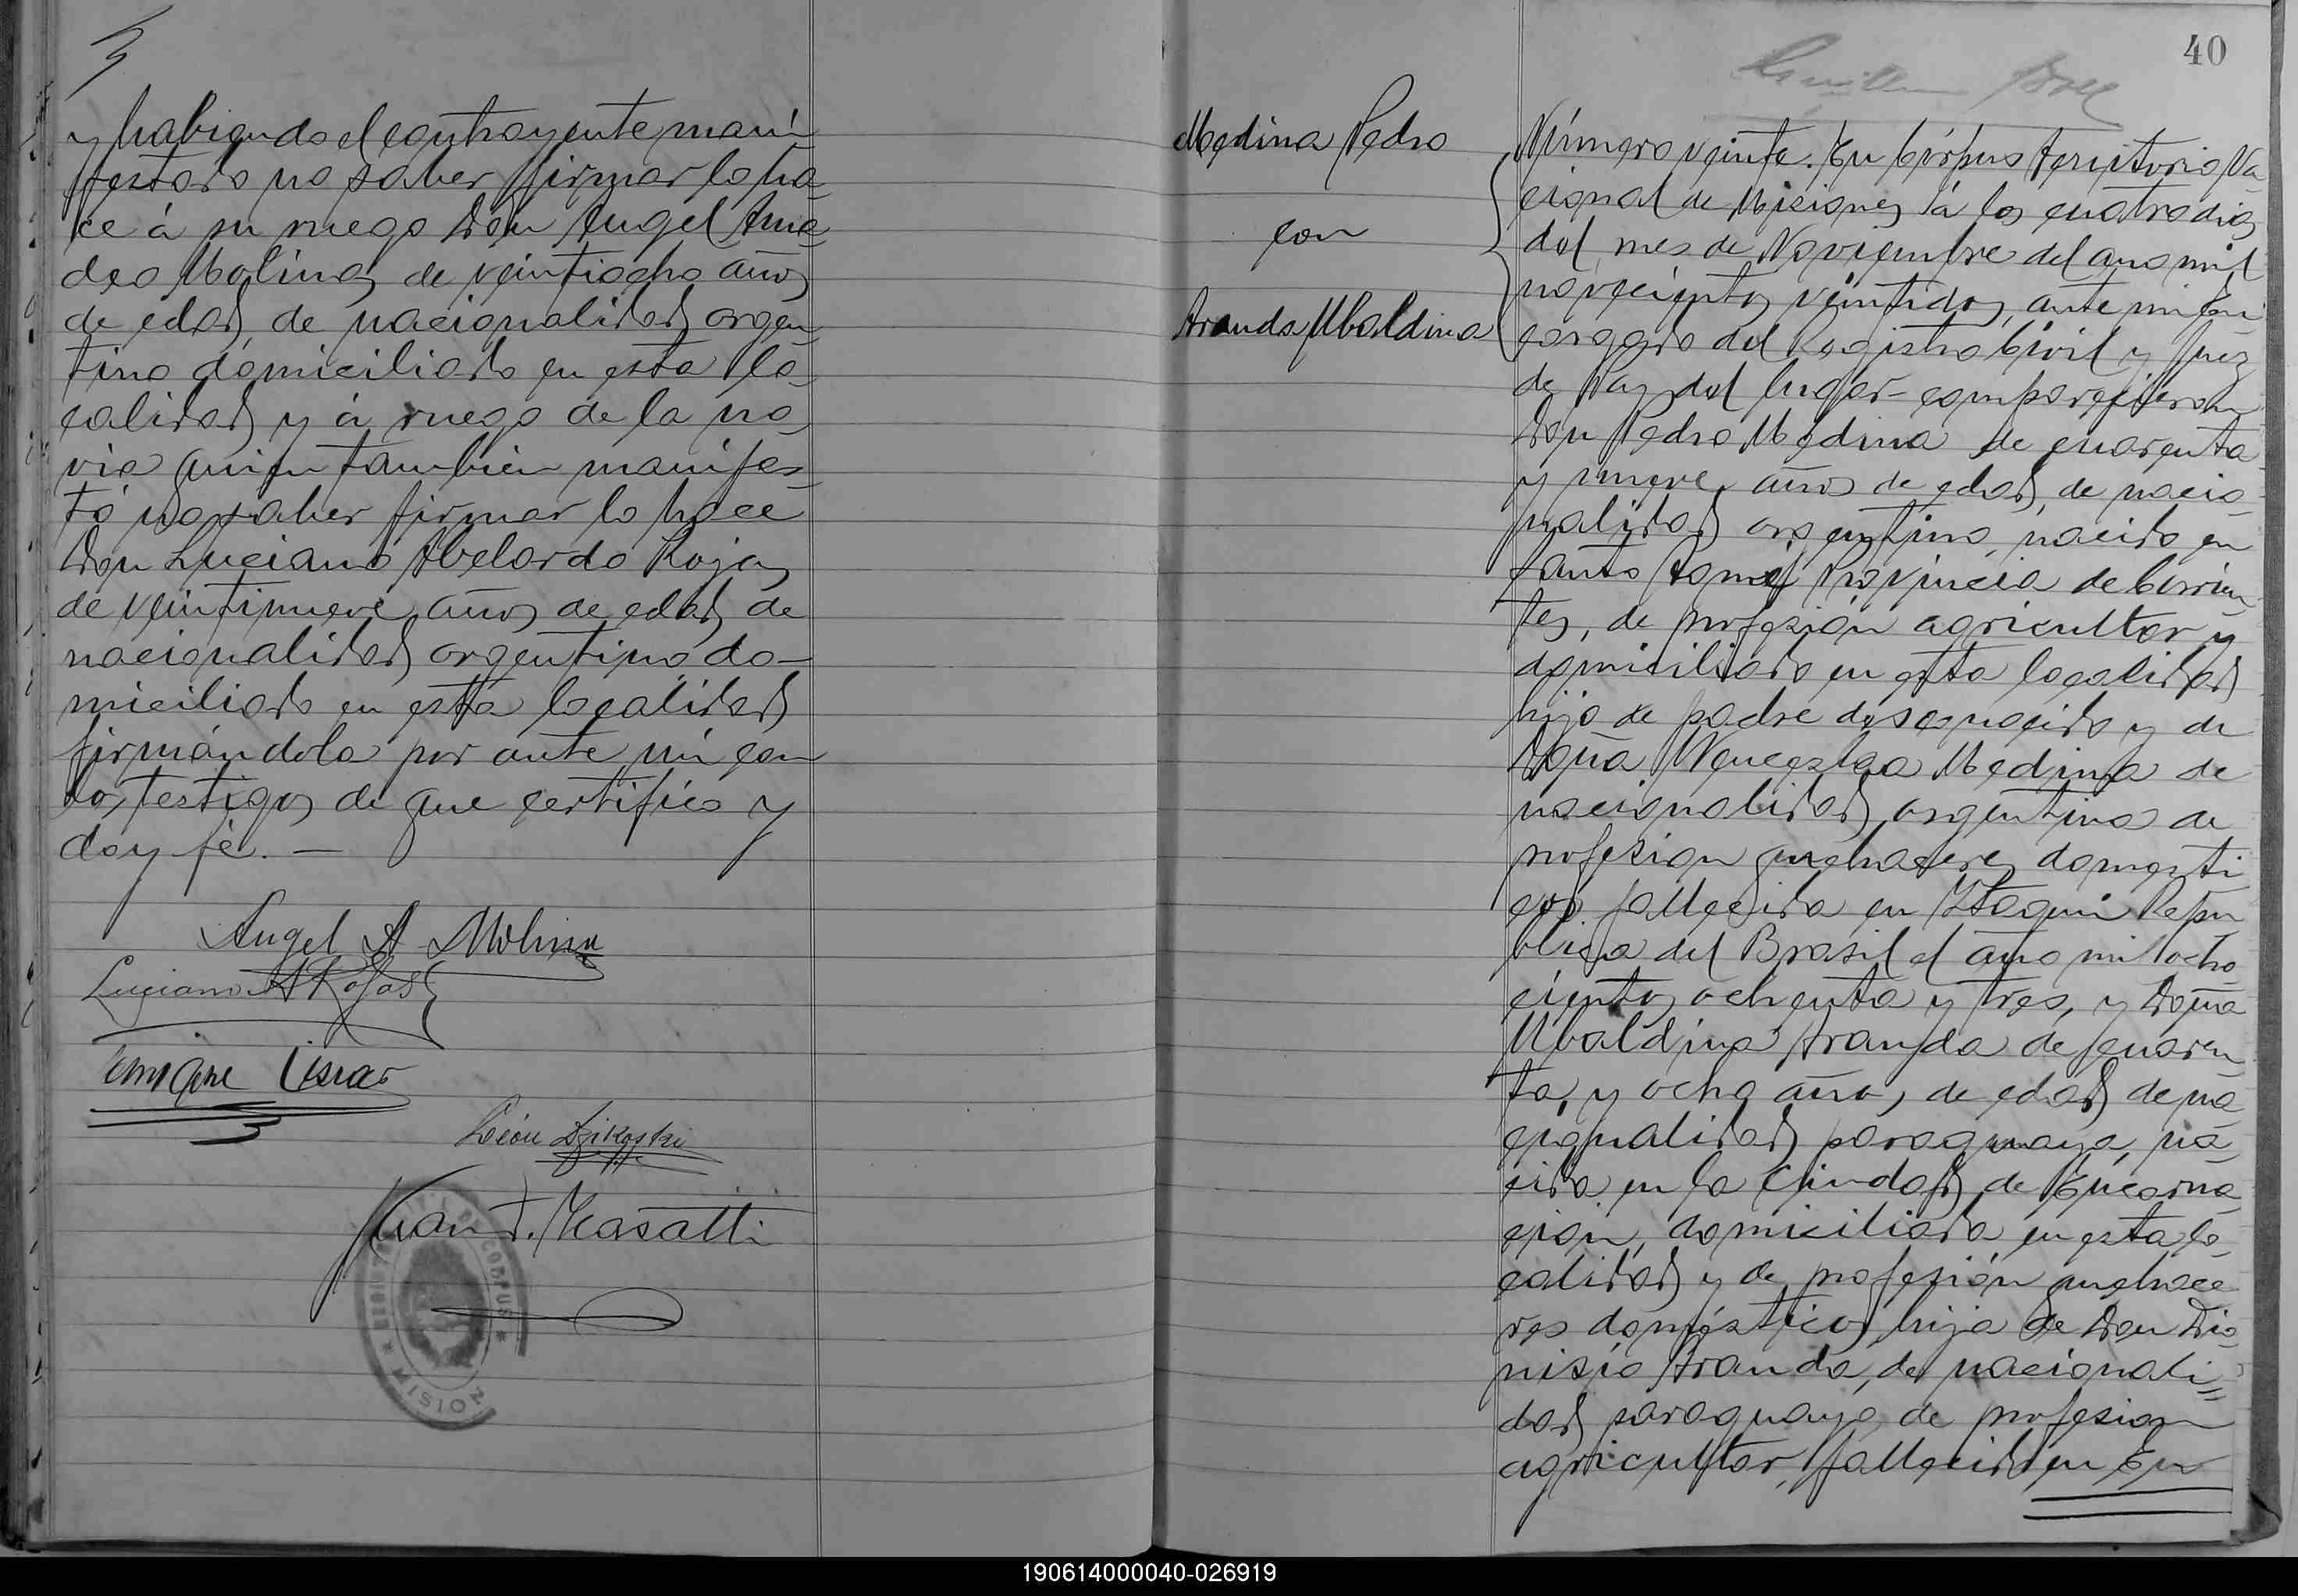 y habiendo el contrayente mani-
festado no saber firmar lo ha-
ce á su ruego Don Angel Ama-
deo Molina, de veintiocho años
de edad, de nacionalidad argen-
tino domiciliado en esta lo-
calidad y á ruego de la no-
via quien también manifes-
tó no saber firmar lo hace
Don Luciano Abelardo Rojas
de veintinueve años de edad, de
nacionalidad argentino, do-
miciliado en esta localidad
firmándola por ante mí con
los testigos de que certifico y
doy fé. —
Angel A Molina
Luciano A Rojas
Enrique
León
Juan
REGISTRO CIVIL DE CORPUS
MISIONES
40
Medina Pedro
con
Aranda Ubaldina
Número veinte. En Córpus Territorio Na-
cional de Misiones á los cuatro dias
del mes de Noviembre del año mil
novecientos veintidos, ante mi En-
cargado del Registro Civil y Juez
de Paz del lugar comparecieron
Don Pedro Medina de cuarenta
y nueve años de edad, de nacio-
nalidad argentino, nacido en
Santo Tomé Provincia de Corrien-
tes, de profesión agricultor y
domiciliado en esta localidad
hijo de padre desconocido y de
Doña Wenceslaa Medina de
nacionalidad argentina de
profesion quehaceres domesti-
cos. fallecida en Itaquí Repu-
blica del Brasil el año mil ocho-
cientos ochenta y tres, y Doña
Ubaldina Aranda de cuaren-
ta y ocho años de edad, de na-
cionalidad paraguaya, na-
cida en la Ciudad de Encarna-
cion, domiciliada en esta lo-
calidad y de profesión quehace-
res domésticos hija de Don Dio-
nisio Aranda, de nacionali-
dad paraguayo, de profesion
agricultor, fallecido en En
190614000040-026919